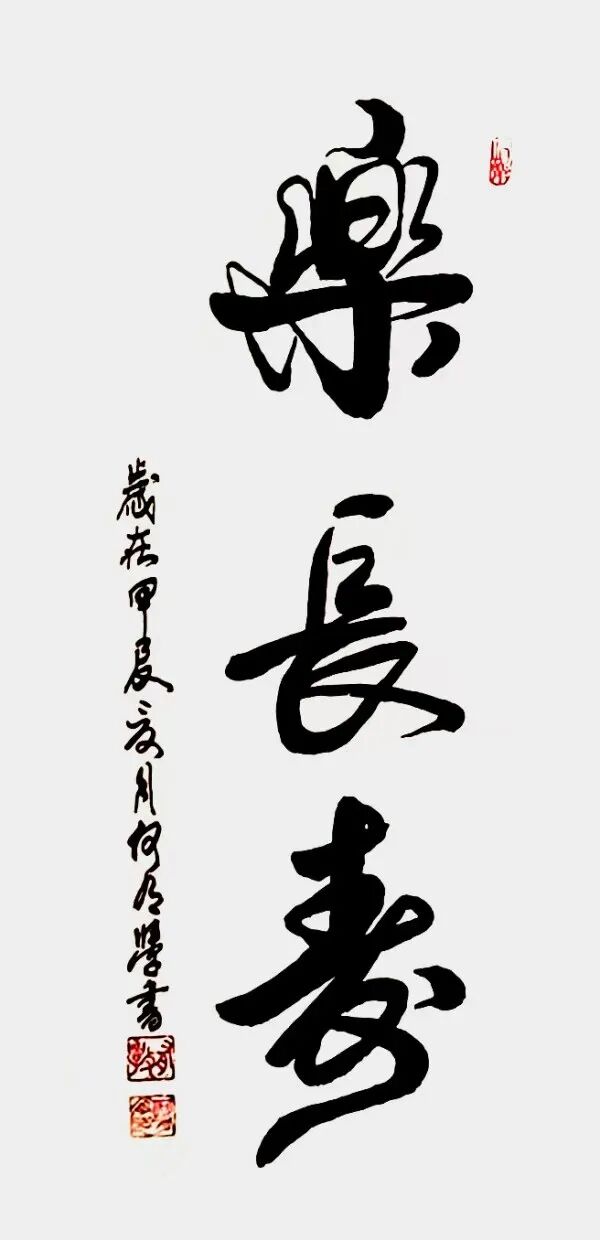 樂長壽
歲在甲辰夏月何有學書